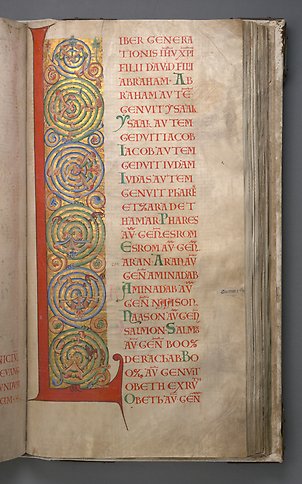 L
IBER GENERA
TIONIS IHV XPI
FILII DAVID FILII
ABRAHAM· AB
RAHAM AUTE
GENUIT YSAAC
YSAAC AUTEM
GENUIT IACOB
IACOB AUTEM
GENUIT IUDAM
IUDAS AUTEM
GENUIT PHARE
ET ZARA DE T
HAMAR· PHARES
AU GEN ESROM
ESROM AU GEN
ARAN· ARAN AU
GEN AMINADAB
AMINADAB AU
GEN NAASON·
NAASON AU GEN
SALMON· SALM
AU GEN BOOZ
DE RACHAB· BO
OZ AU GENUIT
OBETH EX RU
OBETH AU GEN